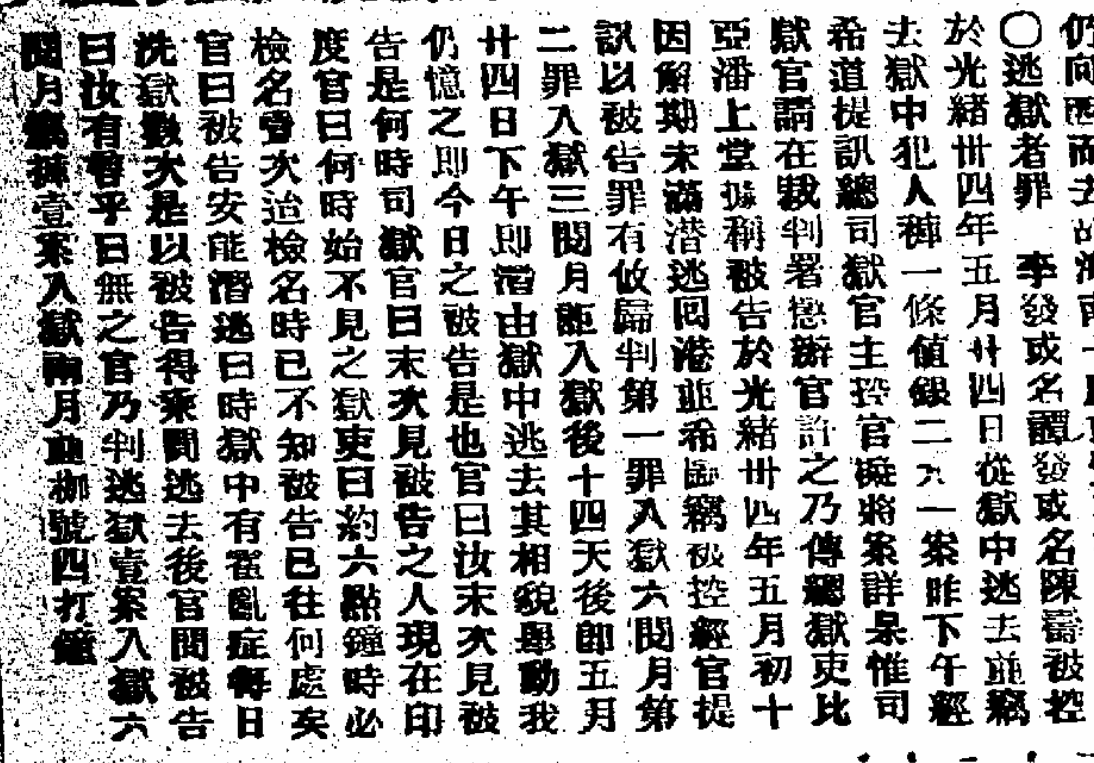 仍向西而去
○逃獄者罪　李發或名譚發或名陳壽被控
於光緒卅四年五月廿四日從獄中逃去並竊
去獄中犯人褲一條值銀二六一案昨下午經
希道提訊總司獄官主控官擬將案詳臬惟司
獄官請在裁判署懲辦官許之乃傳總獄吏比
亞潘上堂據稱被告於光緒卅四年五月初十
因解期未滿潜逃回港並希圖竊被控經官提
訊以被告罪有攸歸判第一罪入獄六閱月第
二罪入獄三閱月詎入獄後十四天後卽五月
廿四日下午即潛由獄中逃去其相貌舉動我
仍憶之即今日之被告是也官曰汝末次見被
告是何時司獄官曰末次見被告之人現在印
度官曰何時始不見之獄吏曰約六點鐘時必
檢名當次迨檢名時已不知被告已往何處矣
官曰被告安能潛逃曰時獄中有霍亂症每日
洗獄數次是以被告得乘間逃去後官問被告
曰汝有辯乎曰無之官乃判逃獄壹案入獄六
閱月竊褲壹案入獄兩月並枷號四打鐘